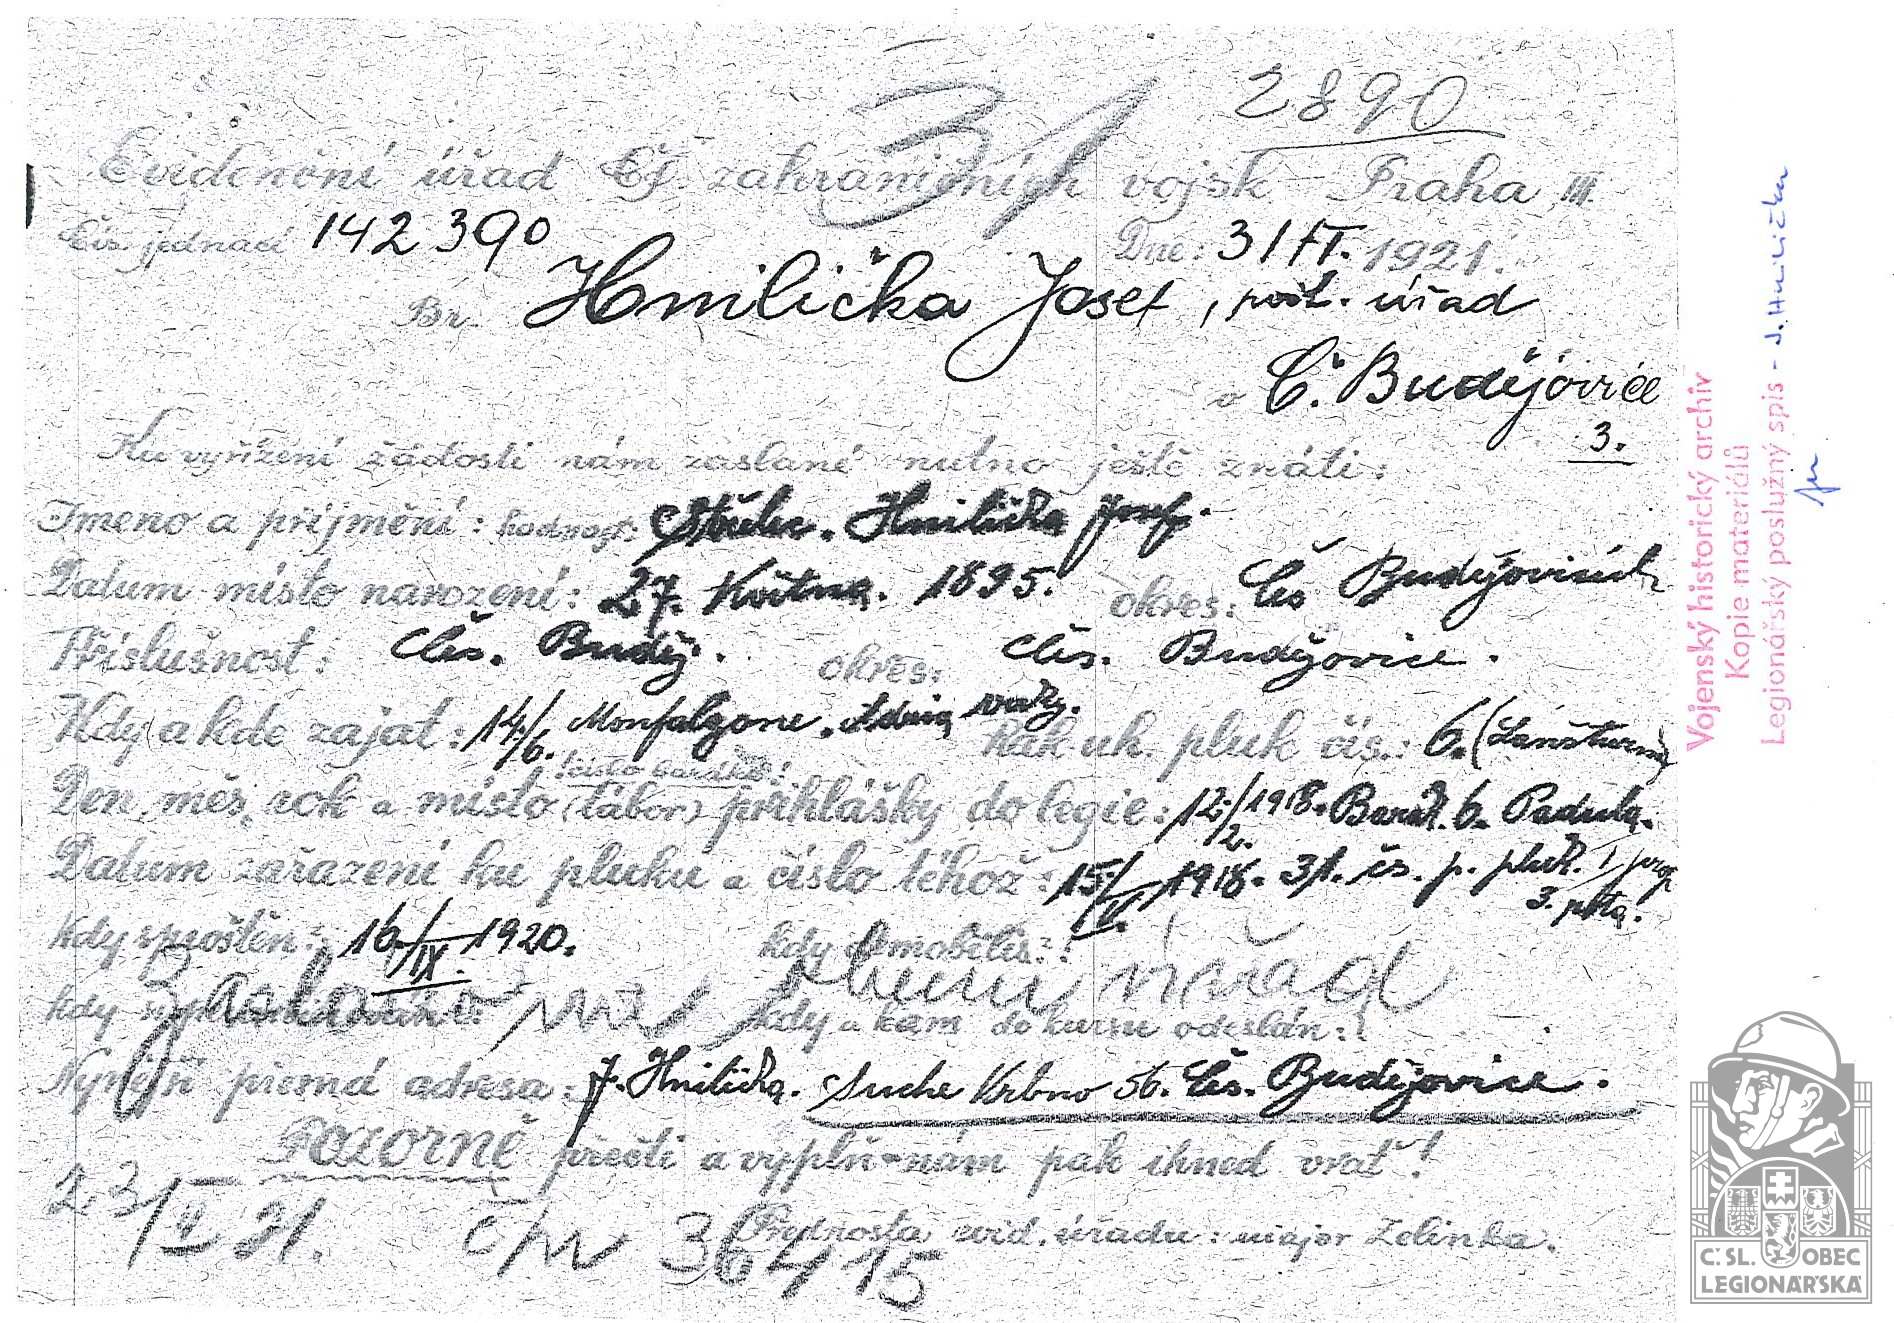 31
2890
Evidenční úřad Čs. zahraničních vojsk - Praha III.
Čís. jednací 142390 Dne: 3/VI. 1921.
Br. Hmilička Josef, pošt. úřad
v Č. Budějovice
3.
Ku vyřízení žádosti nám zaslané nutno ještě znáti:
Jmeno a příjmění: hodnost: Střelec. Hmilička Josef.
Datum místo narození: 27. Května. 1895. okres: Čes Budějovicích
Příslušnost: Čes. Buděj. okres: Čes. Budějovice.
Kdy a kde zajat: 14/6. Monfalgone. Adria Rak uh. pluk čís.: 6. (Lanšturm)
! číslo baráku !
Den, měs, rok a místo (tábor) přihlášky do legie: 12/2. 1918. Barak. 6. Padula.
Datum zařazení ku pluku a číslo téhož: 15/IV. 1918. 31. čs. p. pluk. I prap
3. pota.
Kdy zproštěn: 16/IX. 1920. kdy
kdy kdy a kam do kursu odeslán:
úřad
Nynejší přesná adresa: J. Hmilička. Suche Vrbno 56. Čes. Budějovice.
Pozorně přečti a vyplň - nám pak ihned vrať!
Přednosta evid. úřadu: major Zelinka.
21.
36415
Vojenský historický archiv
Kopie materiálů
Legionářský poslužný spis - J. Hmilička
Č.SL. OBEC
LEGIONÁŘSKÁ